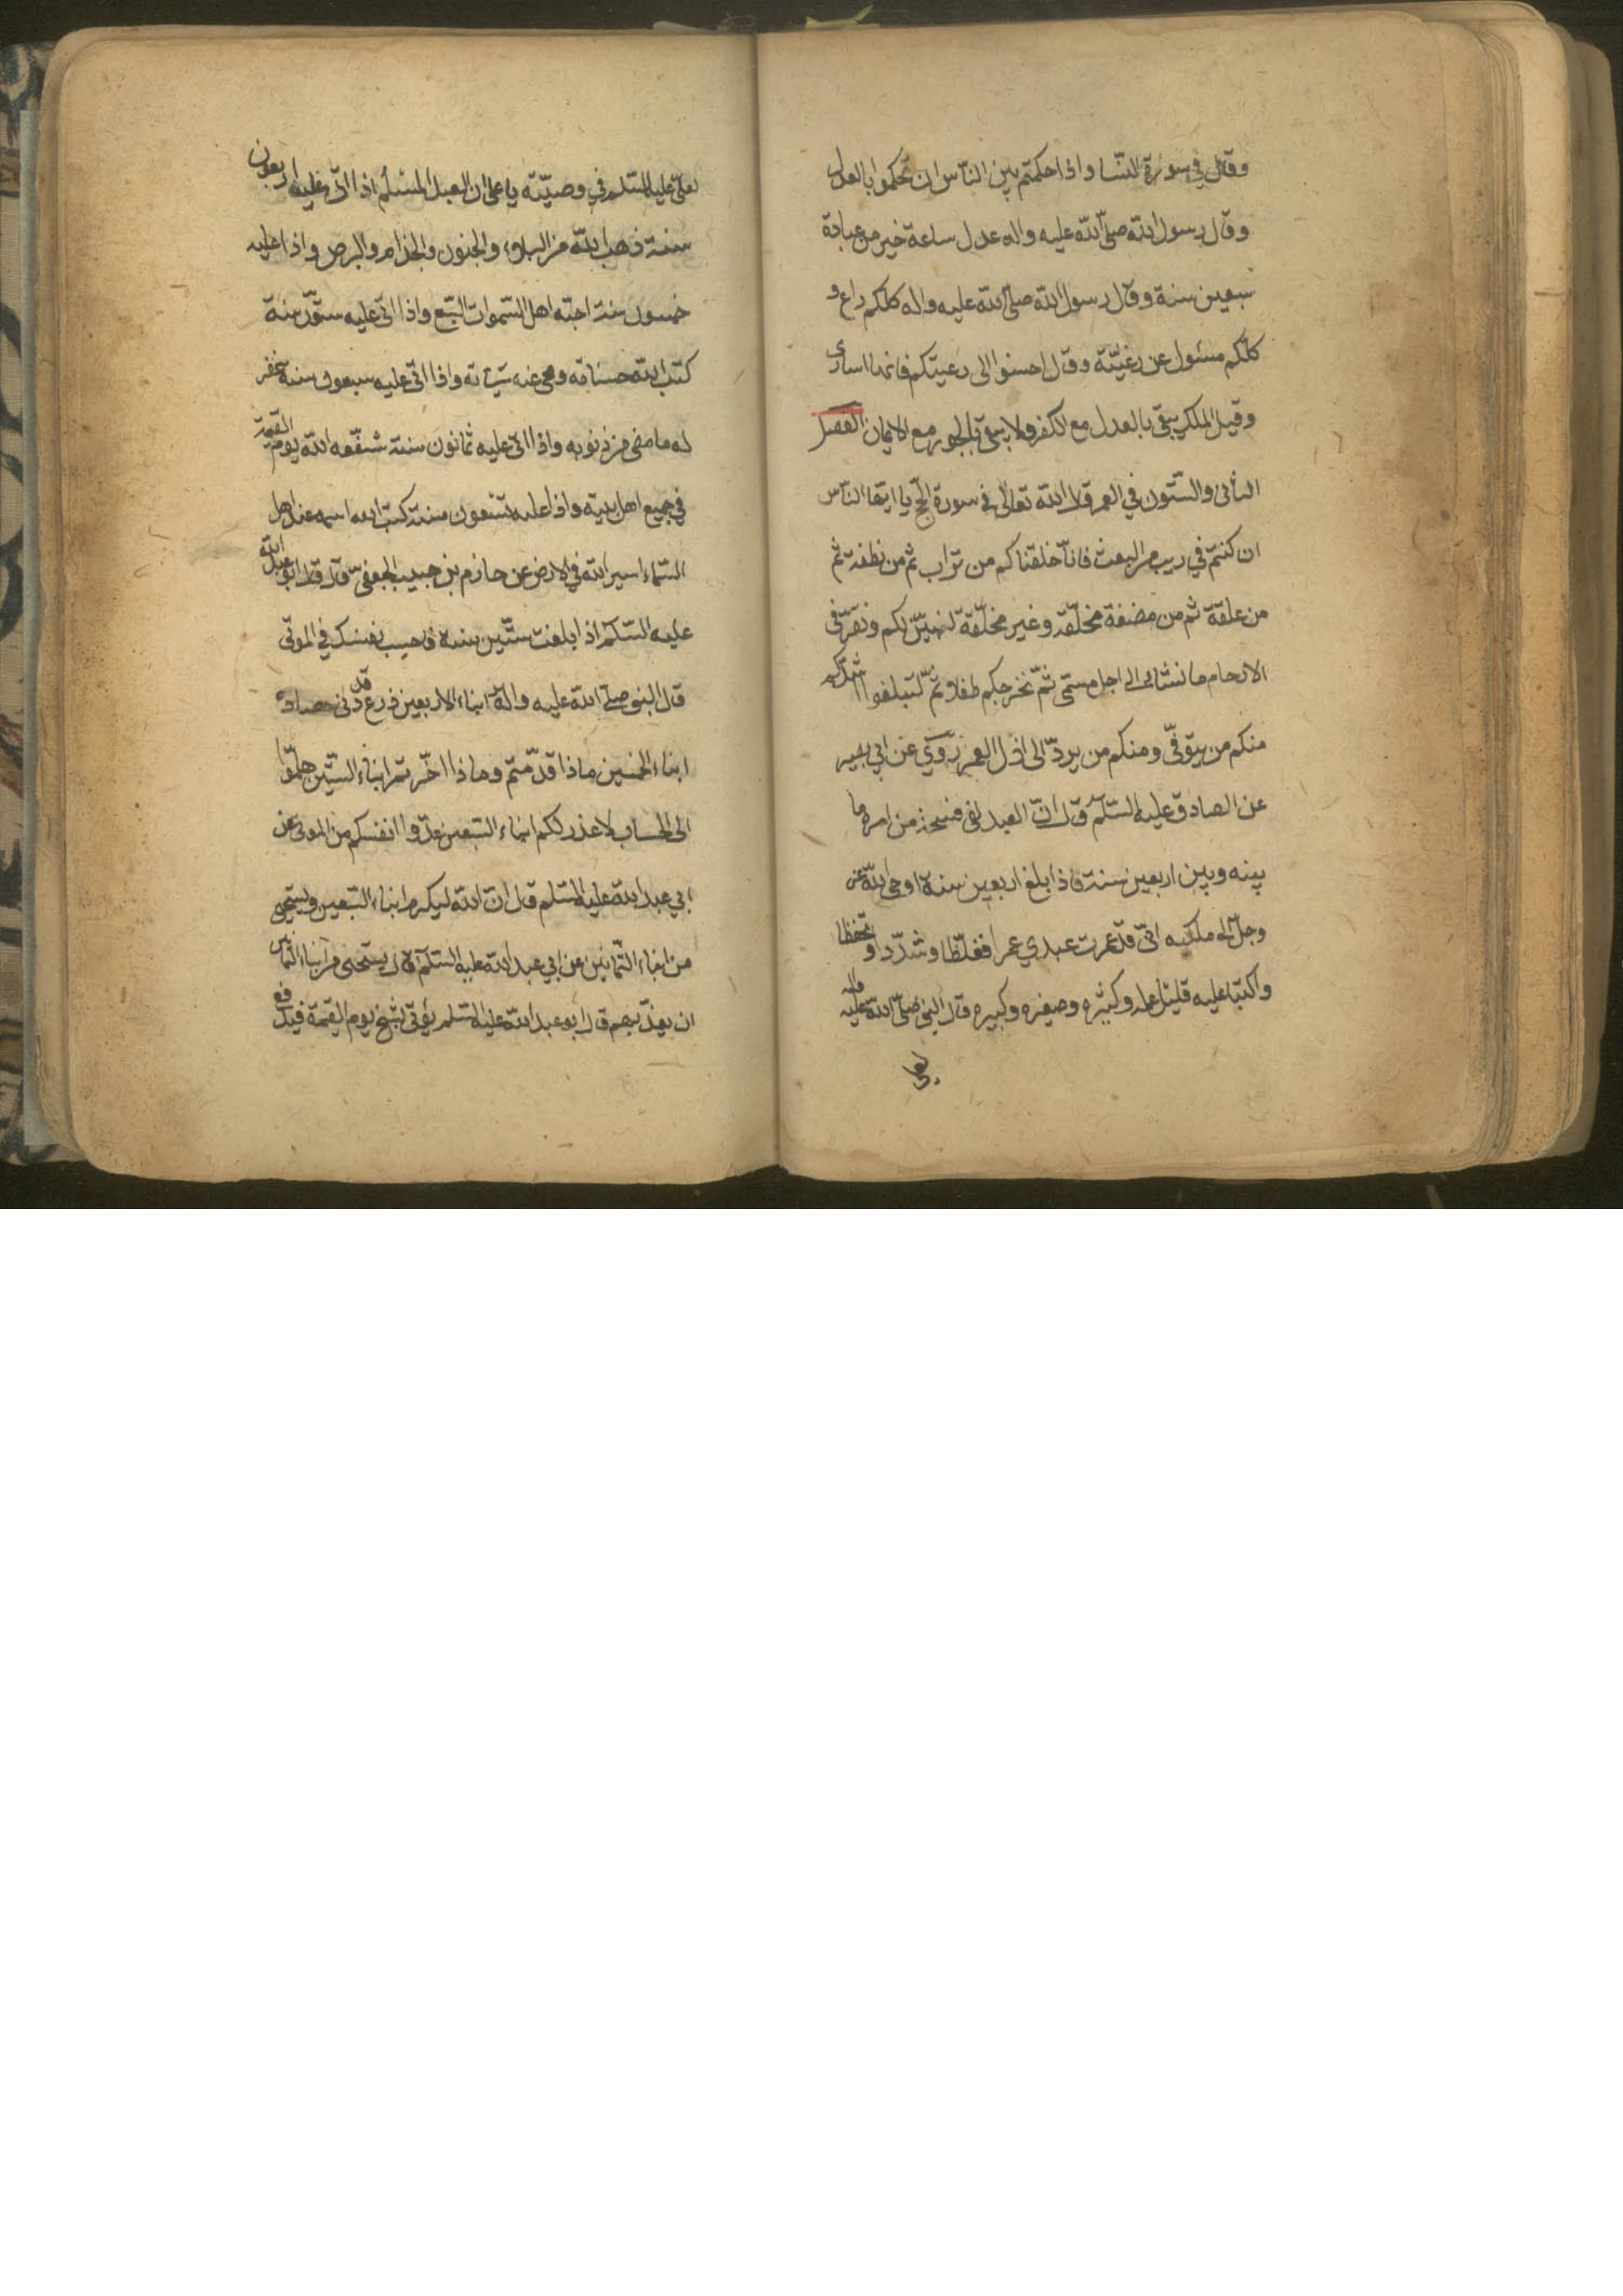 وقال في سورة النسا واذا حكمتم بين الناس ان تحكموا بالعدل
وقال رسول الله صلى الله عليه واله عدل ساعة خير من عبادة
سبعين سنة وقال رسول الله صلى الله عليه واله كلكم راع و
كلكم مسئول عن رعيته وقال احسنوا الى رعيتكم فانها اسارى
وقيل الملك يبقى بالعدل مع الكفر ولا يبقى بالجور مع الايمان الفصل
الثانى والستون في العمر قال الله تعالى في سورة الحج يا ايها الناس
ان كنتم في ريب من البعث فانا خلقناكم من تراب ثم من نطفة ثم
من علقة ثم من مضغة مخلقة وغير مخلقة لنبين لكم ونقر في
الارحام ما نشاء الى اجل مسمى ثم نخرجكم طفلا ثم لتبلغوا اشدكم
منكم من يتوفى ومنكم من يرد الى ارذل العمر روي عن ابي بصير
عن الصادق عليه السلم قال ان العبد لفي فسحة من امره ما
بينه وبين اربعين سنة فاذا بلغ اربعين سنة اوحى الله عز
وجل الى ملكيه اني قد عمرت عبدي عمرا فغلظا وشددا وتحفظا
واكتبا عليه قليل عمله وكثيره وصغيره وكبيره قال النبي صلى الله عليه واله
لعلي عليه السلم في وصيته يا علي ان العبد المسلم اذا اتى عليه اربعون
سنة ذهب الله من البلاء والجنون والجذام والبرص واذا عليه
خمسون سنة احبه اهل السموات السبع واذا اتى عليه ستون سنة
كتب الله حسناته ومحى عنه سيئاته واذا اتى عليه سبعون سنة غفر
له ما مضى من ذنوبه واذا اتى عليه ثمانون سنة شفعه الله يوم القيمة
في جميع اهل بيته واذا عليه تسعون سنة كتب الله اسمه عند اهل
السماء اسير الله في الارض عن حازم بن حبيب الجعفي قال قال ابو عبد الله
عليه السلم اذا بلغت ستين سنة فاحسب نفسك في الموتى
قال النبي صلى الله عليه واله ابناء الاربعين زرع قد دنى حصاده
ابناء الخمسين ماذا قدمتم وماذا اخرتم ابناء الستين هلموا
الى الحساب لا عذر لكم ابناء السبعين عدوا انفسكم من الموتى عن
ابي عبد الله عليه السلم قال ان الله ليكرم ابناء السبعين ويستحيى
من ابناء الثمانين عن ابي عبد الله عليه السلم قال يستحيى من ابناء الثمانين
ان يعذبهم قال ابو عبد الله عليه السلم يؤتى بشيخ يوم القيمة فيدفع